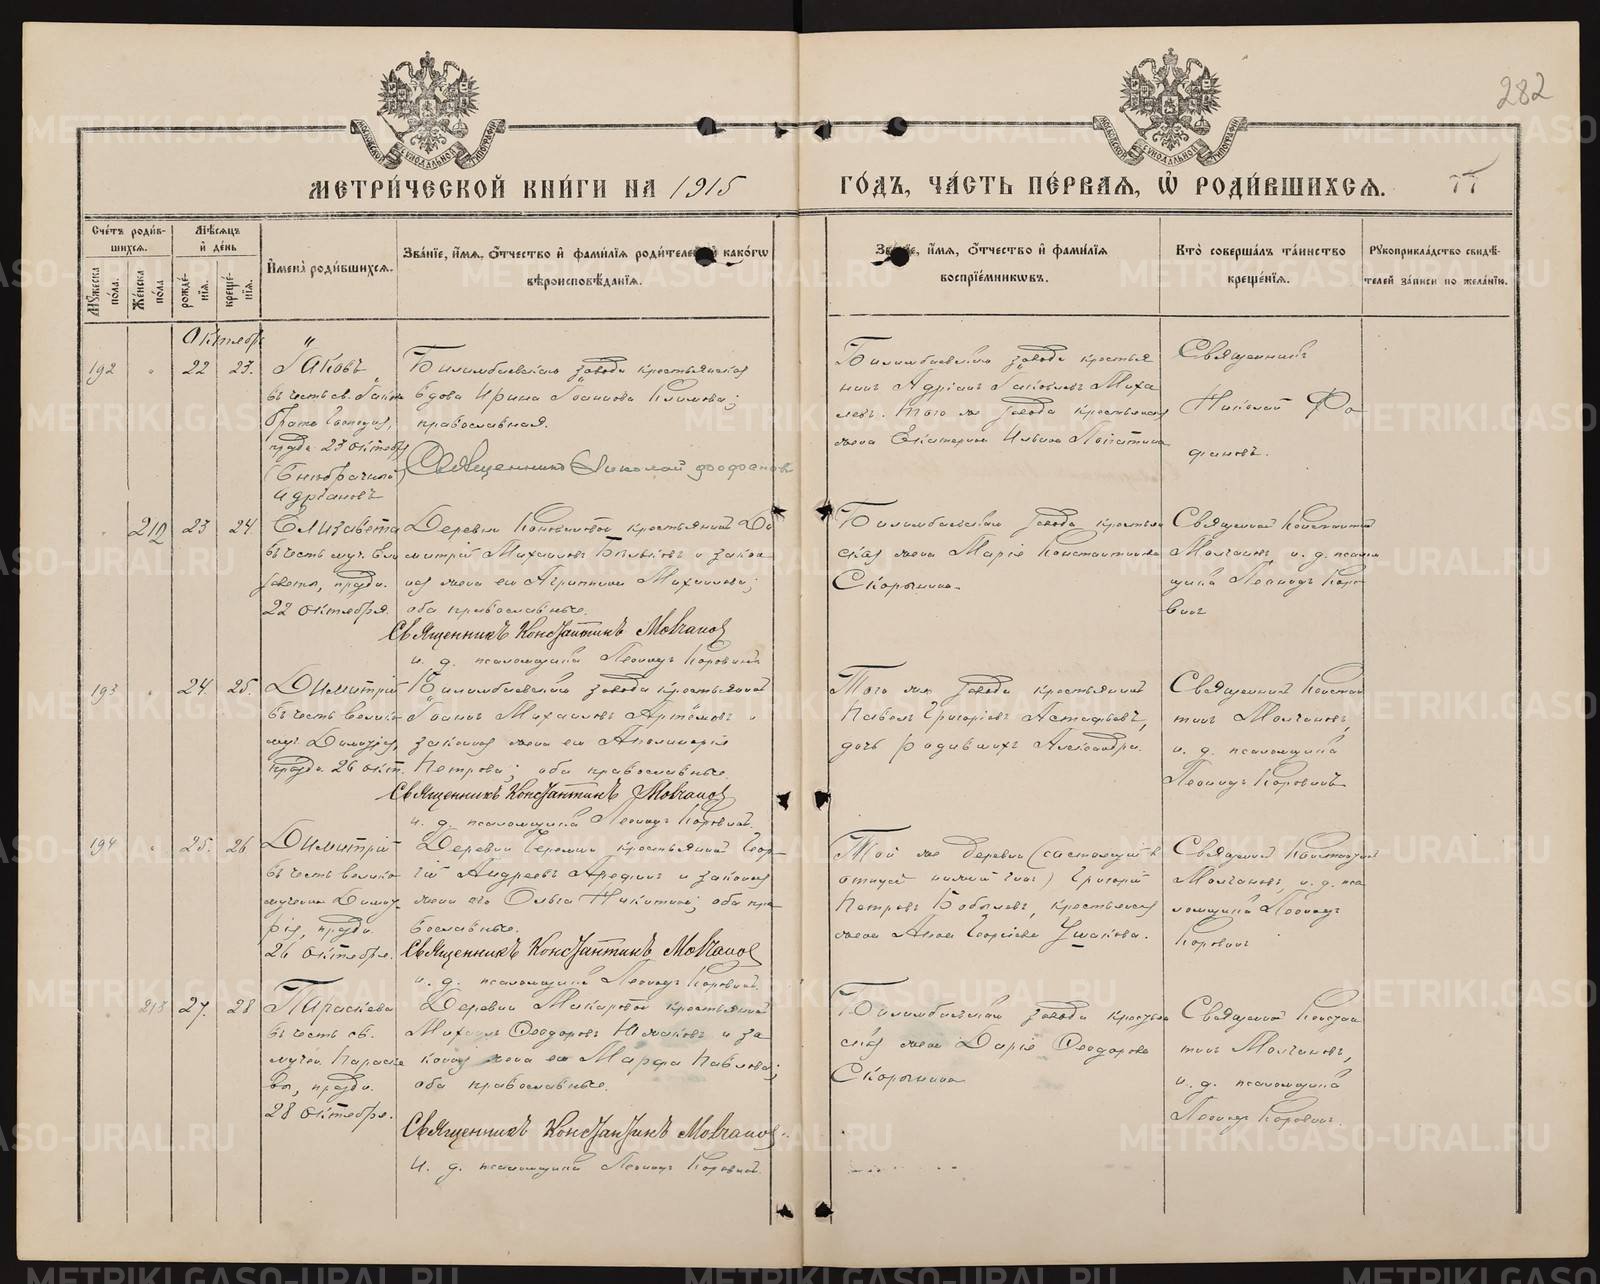 282
МЕТРИ́ЧЕСКОЙ КНИ́ГИ НА 1915
ГО́ДЪ, ЧА́СТЬ ПЕ́РВАЯ, Ѡ҆ РОДИ́ВШИХСЯ.
Сче́тъ роди́в-
шихся.
Му́жеска по́ла.
Же́нска по́ла
Мѣ́сяцъ
и҆ де́нь
рожде́-
нїя.
креще́-
нїя.
И҆мена̀ роди́вшихся.
Зва́нїе, и҆́мѧ, ѻ҆́тчество и҆ фами́лїя роди́телей и҆ како́гѡ
вѣроисповѣ́данїя.
Зва́нїе, и҆́мѧ, ѻ҆́тчество и҆ фами́лїя
воспрїе́мникѡвъ.
Кто̀ соверша́лъ та́инство
креще́нїя.
Рꙋкоприкла́дство свидѣ́-
телей за́писи по жела́нїю.
Октябрь
192
22
23.
Іаковъ
въ честь св. Іакова
брата Господня,
празд. 23 октября
(Внебрачный)
Адріановъ
Билимбаевскаго завода крестьянская
вдова Ирина Іоаннова Климова;
православная.
Священникъ Николай Феофановъ
Билимбаевскаго завода крестья
нинъ Адріанъ Іаковлевъ Миха
левъ. Того же завода крестьянская
жена Екатерина Ильина
Священникъ
Николай Фео
фановъ.
212
23
24.
Елизавета
въ честь муч. Ели
саветы, праздн.
22 октября.
Деревни Коноваловой крестьянинъ Ди
митрій Михаиловъ Бѣльковъ и закон
ная жена его Агрипина Михаилова;
оба православные.
Священникъ Константинъ Молчановъ
и. д. псаломщика Леонидъ Коровинъ
Билимбаевскаго завода крестьян
ская жена Марія Константинова
Скорынина
Священникъ Констант
Молчановъ, и. д. псалом
щика Леонидъ Коро
винъ
193
24.
25.
Димитрій
въ честь велико
муч. Димитрія,
празд. 26 окт.
Билимбаевскаго завода крестьянинъ
Іоаннъ Михаиловъ Артёмовъ и
законная жена его Аполинарія
Петрова; оба православные
Священникъ Константинъ Молчановъ
и. д. псаломщика Леонидъ Коровинъ.
Того же завода крестьянинъ
Павелъ Григоріевъ Астафьевъ,
дочь родившихъ Александра.
Священникъ Констан
тинъ Молчановъ,
и. д. псаломщика
Леонидъ Коровинъ
194
25.
26
Димитрій
въ честь велико
мученика Димит
рія, праздн.
26 октября.
Деревни Черемши крестьянинъ Геор-
гій Андреевъ Арефинъ и законная
жена его Ольга Никитина; оба пра
вославные.
Священникъ Константинъ Молчановъ
и. д. псаломщика Леонидъ Коровинъ.
Той же деревни (состоящій въ
отпуску нижній чинъ) Григорій
Петровъ Бобылевъ, крестьянская
жена Анна Георгіева Ушакова.
Священникъ Константинъ
Молчановъ, и. д. пса
ломщика Леонидъ
Коровинъ
213
27.
28
Параскева
въ честь св.
мучен. Параске
вы, праздн.
28 октября.
Деревни Макаровой крестьянинъ
Михаилъ Ѳеодоровъ и за
конная жена его Марѳа Павлова;
оба православные.
Священникъ Константинъ Молчановъ.
И. д. псаломщика Леонидъ Коровинъ.
Билимбаевскаго завода крестьян
ская жена Дарія Ѳеодорова
Скорынина
Священникъ Констан
тинъ Молчановъ,
и. д. псаломщика
Леонидъ Коровинъ.
METRIKI.GASO-URAL.RU